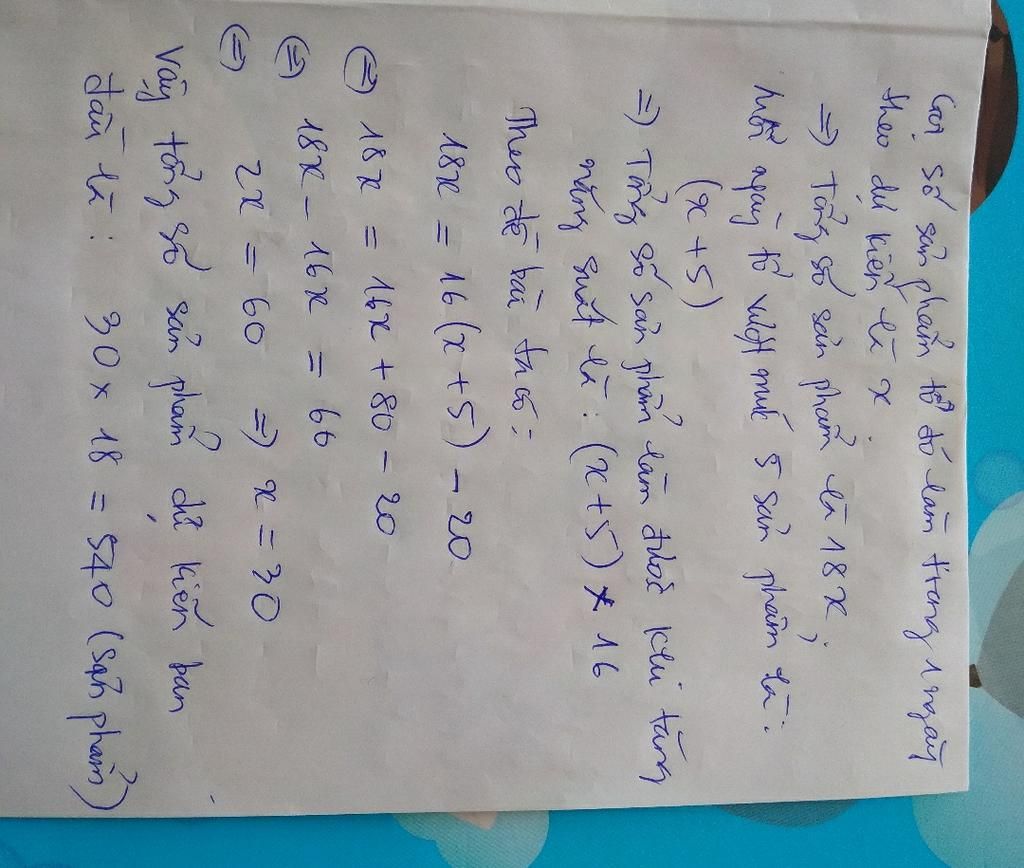 Gọi số sản phẩm tổ đó làm trong 1 ngày
theo dự kiến là x.
=> Tổng số sản phẩm là 18x.
Mỗi ngày tổ vượt mức 5 sản phẩm là:
(x + 5)
=> Tổng số sản phẩm làm được khi tăng
năng suất là: (x + 5) × 16
Theo đề bài ta có:
18x = 16(x + 5) - 20
(=) 18x = 16x + 80 - 20
(=) 18x - 16x = 60
(=) 2x = 60 => x = 30
Vậy tổng số sản phẩm dự kiến ban
đầu là: 30 × 18 = 540 (sản phẩm)